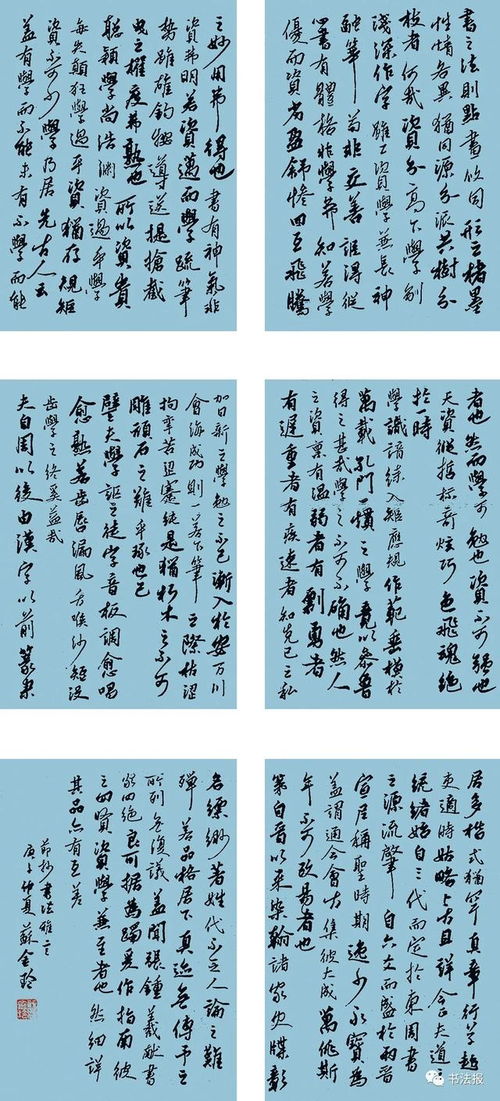 書之法則點畫攸同形之楮墨
性情各異猶同源分派共樹分
枝者何哉資分高下學別
淺深作字雖工資學兼長神
融筆苟非交善詎得從
心書有體格非學弗知若學
優而資劣盈舒慘回互飛騰
之妙用弗得也書有神氣非
資弗明若資邁而學疏筆
勢雖雄鈎導送提搶截
曳之權度弗熟也所以資貴
聰穎學尚浩淵資過乎學
每失顛狂學過乎資猶存規矩
資不可少學乃居先古人云
蓋有學而不能未有不學而能
者也然而學可勉也資不可強也
天資縱哲標奇炫巧色飛魂絕
於一時
學識諳練入矩應規作範垂模於
萬載孔門一慣之學竟以參魯
得之甚哉學之不可不確也然人
之資稟有溫弱者有剽勇者
有遲重者有疾速者知克己之私
加日新之學勉之不已漸入於安万川
會海成功則一若下筆之際枯澀
拘攣苦迫蹇鈍是猶朽木之不可
雕頑石之難乎琢也已
譬夫學謳之徒字音板調愈唱
愈熟若齒唇漏風舌喉沙短沒
齒學之終奚益哉
夫自周以後由漢字以前篆隸
居多楷式猶罕真章行草趨
吏適時姑略上古且詳今焉夫道之
統緒始自三代而定於東周書
之源流肇自六爻而盛於兩晉
宣尼稱聖時逸少永寶為
蓋謂通今會古集彼大成萬億斯
年不可改易者也
第自晉以來染翰諸家史牒彰
名縹緗著姓代不乏人論之難
殫若品格居下真迹無傳予之
所列無復議蓋聞張鍾羲獻書
家四絕良可据為躅爰作指南彼
之四賢資學兼至者也然細詳
其品亦有互差
節抄書法雅言
庚子仲夏蘇金玲
书法报